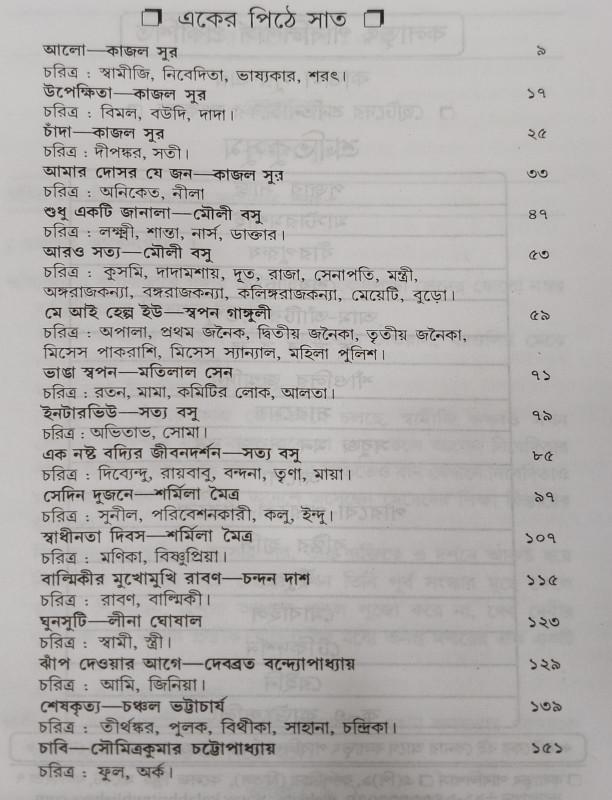 ❐ একের পিঠে সাত ❐
আলো—কাজল সুর ৯
চরিত্র : স্বামীজি, নিবেদিতা, ভাষ্যকার, শরৎ।
উপেক্ষিতা—কাজল সুর ১৭
চরিত্র : বিমল, বউদি, দাদা।
চাঁদা—কাজল সুর ২৫
চরিত্র : দীপঙ্কর, সতী।
আমার দোসর যে জন—কাজল সুর ৩৩
চরিত্র : অনিকেত, নীলা
শুধু একটি জানালা—মৌলী বসু ৪৭
চরিত্র : লক্ষ্মী, শান্তা, নার্স, ডাক্তার।
আরও সত্য—মৌলী বসু ৫৩
চরিত্র : কুসমি, দাদামশায়, দূত, রাজা, সেনাপতি, মন্ত্রী,
অঙ্গরাজকন্যা, বঙ্গরাজকন্যা, কলিঙ্গরাজকন্যা, মেয়েটি, বুড়ো।
মে আই হেল্প ইউ—স্বপন গাঙ্গুলী ৫৯
চরিত্র : অপালা, প্রথম জনৈক, দ্বিতীয় জনৈকা, তৃতীয় জনৈকা,
মিসেস পাকরাশি, মিসেস স্যান্যাল, মহিলা পুলিশ।
ভাঙা স্বপন—মতিলাল সেন ৭১
চরিত্র : রতন, মামা, কমিটির লোক, আলতা।
ইনটারভিউ—সত্য বসু ৭৯
চরিত্র : অভিতাভ, সোমা।
এক নষ্ট বদ্যির জীবনদর্শন—সত্য বসু ৮৫
চরিত্র : দিব্যেন্দু, রায়বাবু, বন্দনা, তৃণা, মায়া।
সেদিন দুজনে—শর্মিলা মৈত্র ৯৭
চরিত্র : সুনীল, পরিবেশনকারী, কলু, ইন্দু।
স্বাধীনতা দিবস—শর্মিলা মৈত্র ১০৭
চরিত্র : মণিকা, বিষ্ণুপ্রিয়া।
বাল্মিকীর মুখোমুখি রাবণ—চন্দন দাশ ১১৫
চরিত্র : রাবণ, বাল্মিকী।
খুনসুটি—লীনা ঘোষাল ১২৩
চরিত্র : স্বামী, স্ত্রী।
ঝাঁপ দেওয়ার আগে—দেবব্রত বন্দ্যোপাধ্যায় ১২৯
চরিত্র : আমি, জিনিয়া।
শেষকৃত্য—চঞ্চল ভট্টাচার্য ১৩৯
চরিত্র : তীর্থঙ্কর, পুলক, বিথীকা, সাহানা, চন্দ্রিকা।
চাবি—সৌমিত্রকুমার চট্টোপাধ্যায় ১৫১
চরিত্র : ফুল, অর্ক।